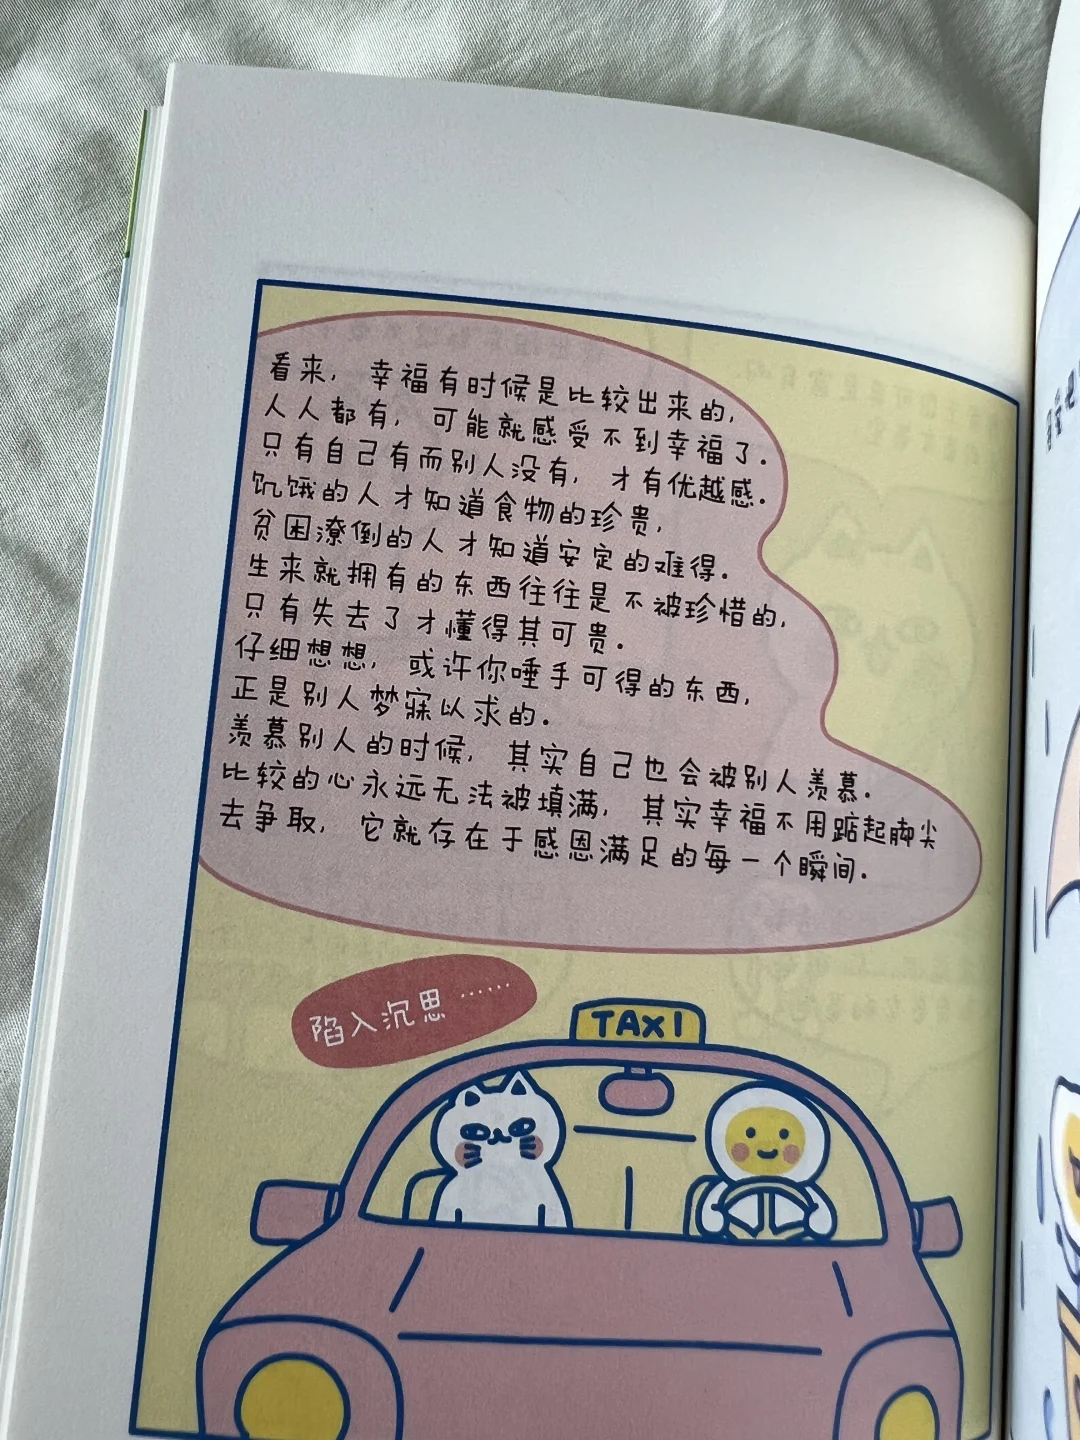 看来，幸福有时候是比较出来的，
人人都有，可能就感受不到幸福了.
只有自己有而别人没有，才有优越感.
饥饿的人才知道食物的珍贵，
贫困潦倒的人才知道安定的难得.
生来就拥有的东西往往是不被珍惜的，
只有失去了才懂得其可贵.
仔细想想，或许你唾手可得的东西，
正是别人梦寐以求的.
羡慕别人的时候，其实自己也会被别人羡慕.
比较的心永远无法被填满，其实幸福不用踮起脚尖
去争取，它就存在于感恩满足的每一个瞬间.
陷入沉思……
TAXI